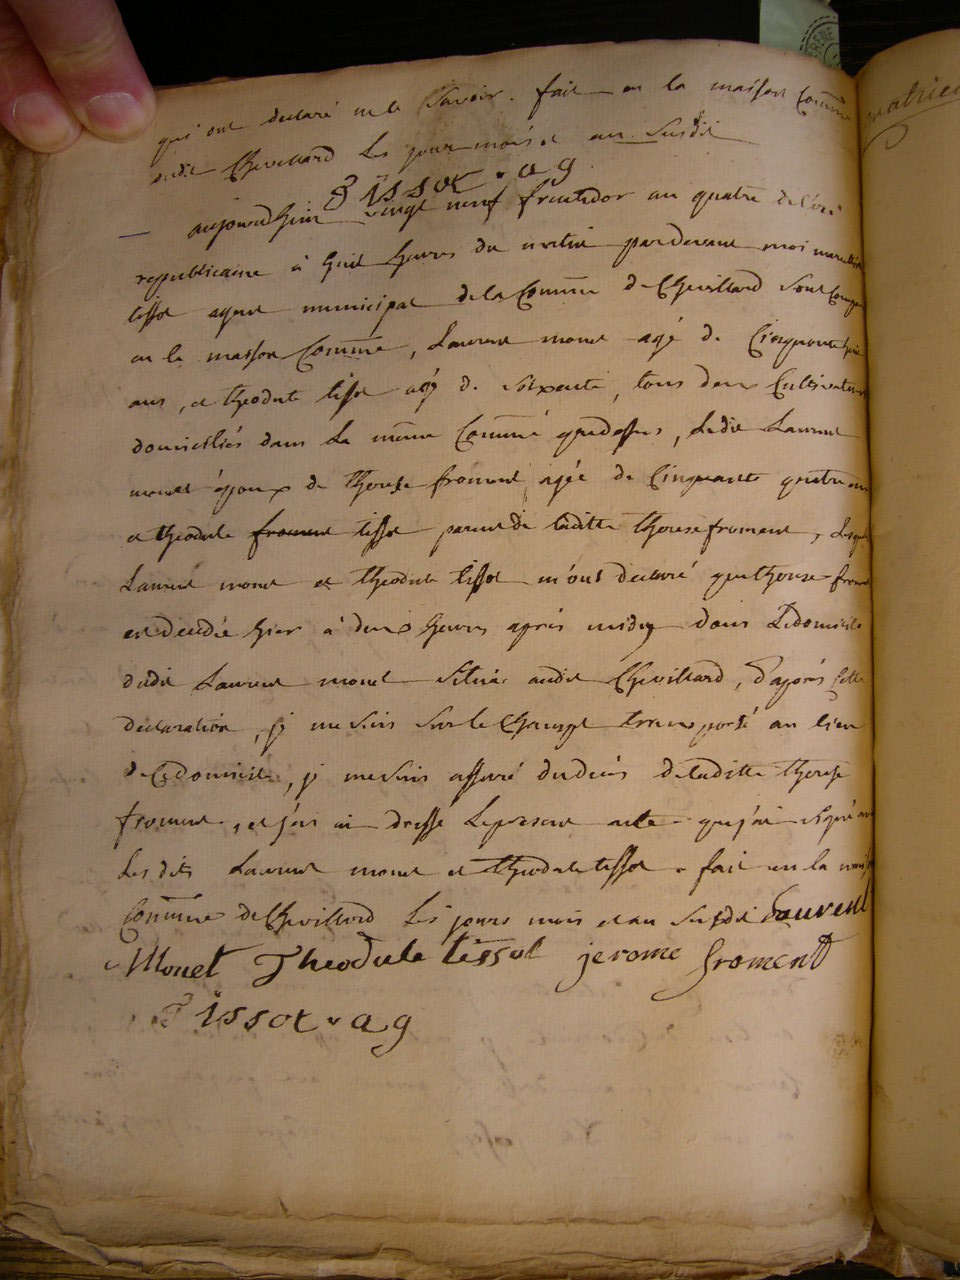 qui ont declaré ne le Savoir. fait en la maison Comme
dudit Chevillard les jour mois et an Susdit
Tissot . ag
aujourdhuit vingt neuf fructidor an quatre de l'ère
republicaine à huit heures du matin pardevant moi
tissot agent municipal de la Comme de Chevillard sont
en la maison Comme, Laurent monet agé de Cinquante
ans, et theodule tissot agé de soixante, tous deux Cultivateurs
domiciliés dans la même Commé que dessus, Ledit Laurent
monet époux de therese froment, agée de Cinquante quatre ans
et theodule froment tissot parent de laditte therese froment,
Laurent monet et theodule tissot m'ont declaré que therese
est decedée hier à deux heures après midy dans Ledomicile
dudit Laurent monet situé audit Chevillard, d'après Cette
declaration, je me suis sur le Champt transporté au lieu
de Cedomicile, je me suis assuré du decès de laditte therese
froment, et j'en ai dressé Lepresent acte que j'ai signé
Les dits Laurent monet et theodule tissot. fait en la
Comme de Chevillard les jours mois et an Susdit Laurent
Monet Theodule tissot jerome froment
Tissot . ag